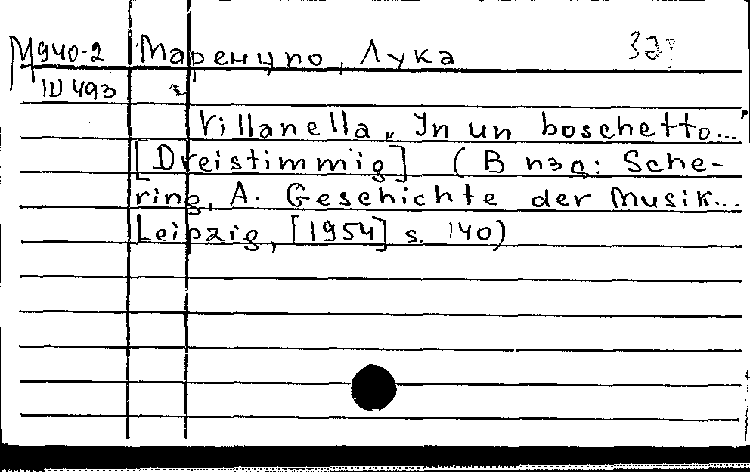 М940-2 Маренцио, Лука
ID 493
Villanella „In un boschetto..."
[Dreistimmig] (В изд: Sche-
ring, A. Geschichte der Musik...
Leipzig, [1954] s. 140)